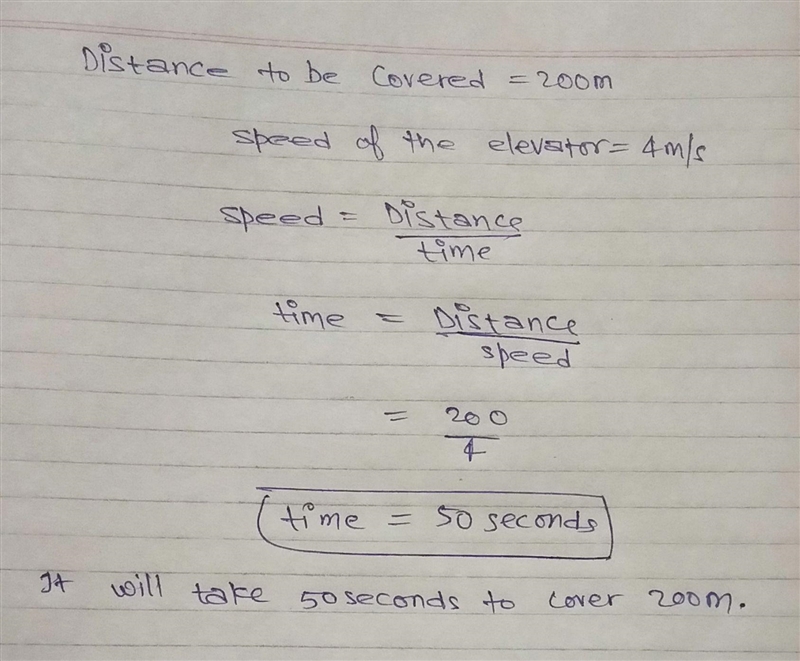 Distance to be Covered = 200m
speed of the elevator = 4m/s
speed = Distance
time
time = Distance
speed
= 200
4
time = 50 seconds
It will take 50 seconds to cover 200m.